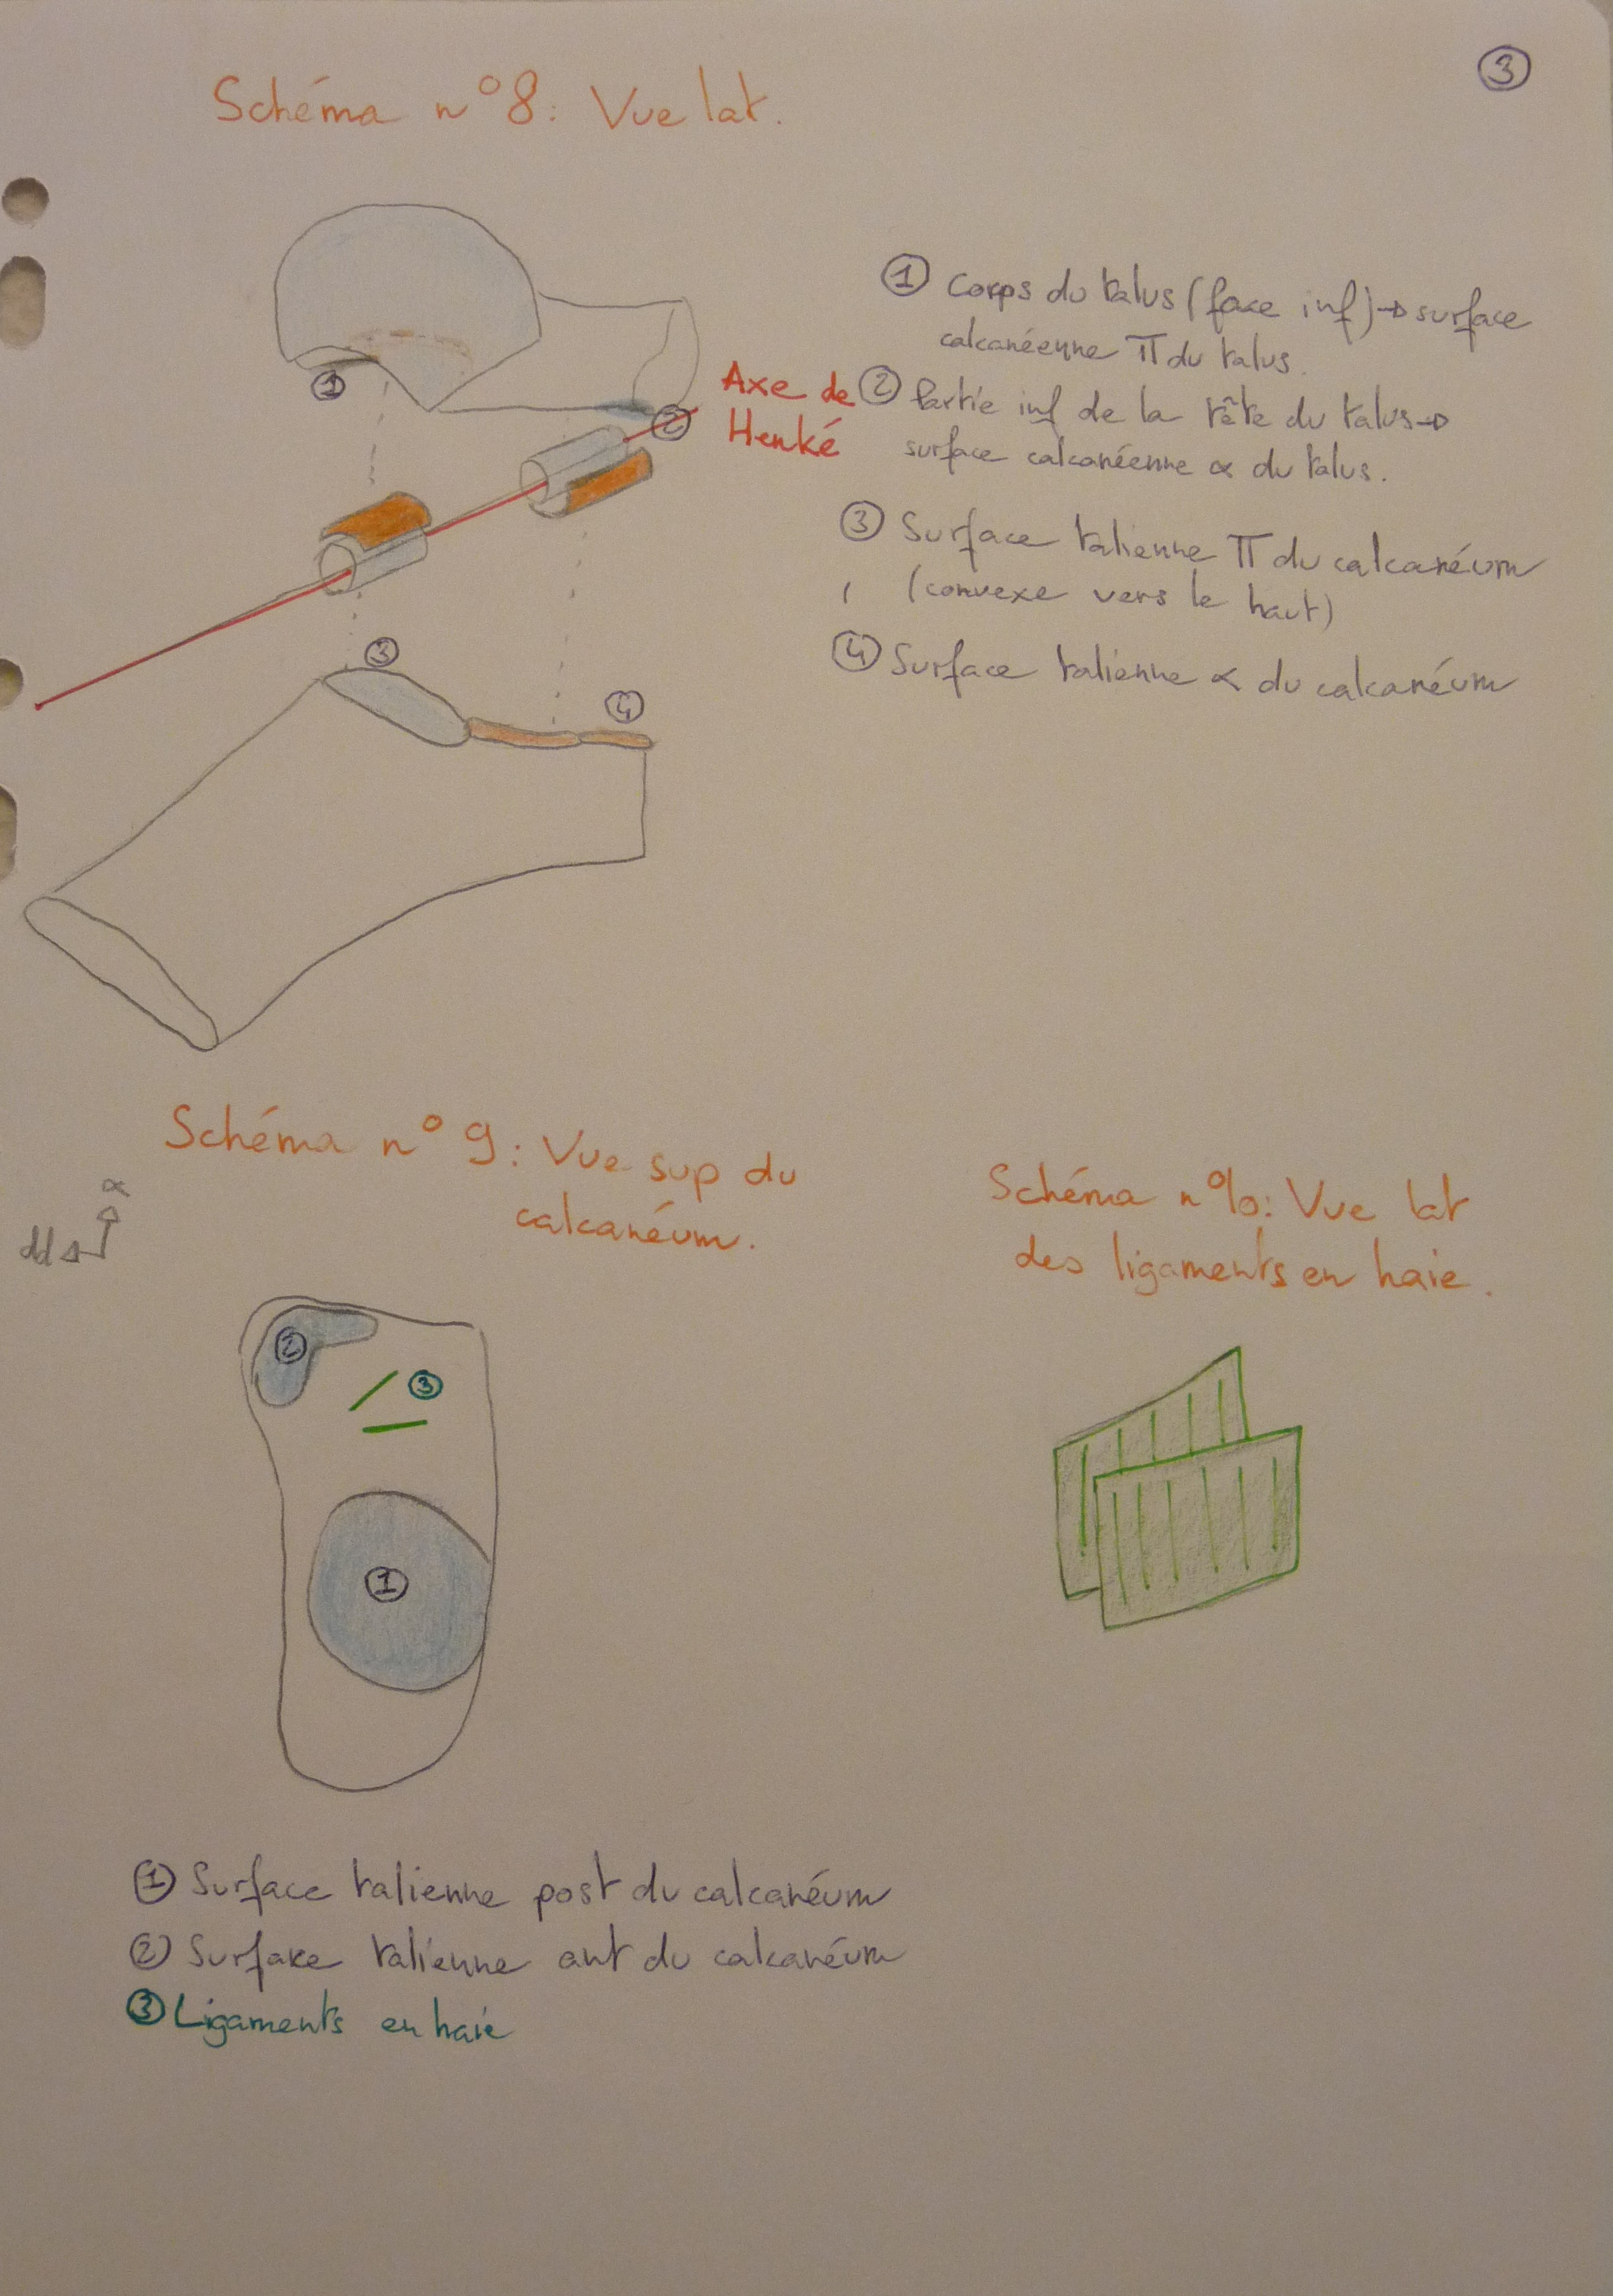 ③
Schéma n°8: Vue lat.
① Corps du talus (face inf) → surface
calcanéenne π du talus.
①
Axe de
Henké
②
② Partie inf de la tête du talus →
surface calcanéenne α du talus.
③ Surface talienne π du calcanéum
(convexe vers le haut)
③
④
④ Surface talienne α du calcanéum
Schéma n°9: Vue sup du
calcanéum.
α
Schéma n°10: Vue lat
des ligaments en haie.
②
③
①
① Surface talienne post du calcanéum
② Surface talienne ant du calcanéum
③ Ligaments en haie